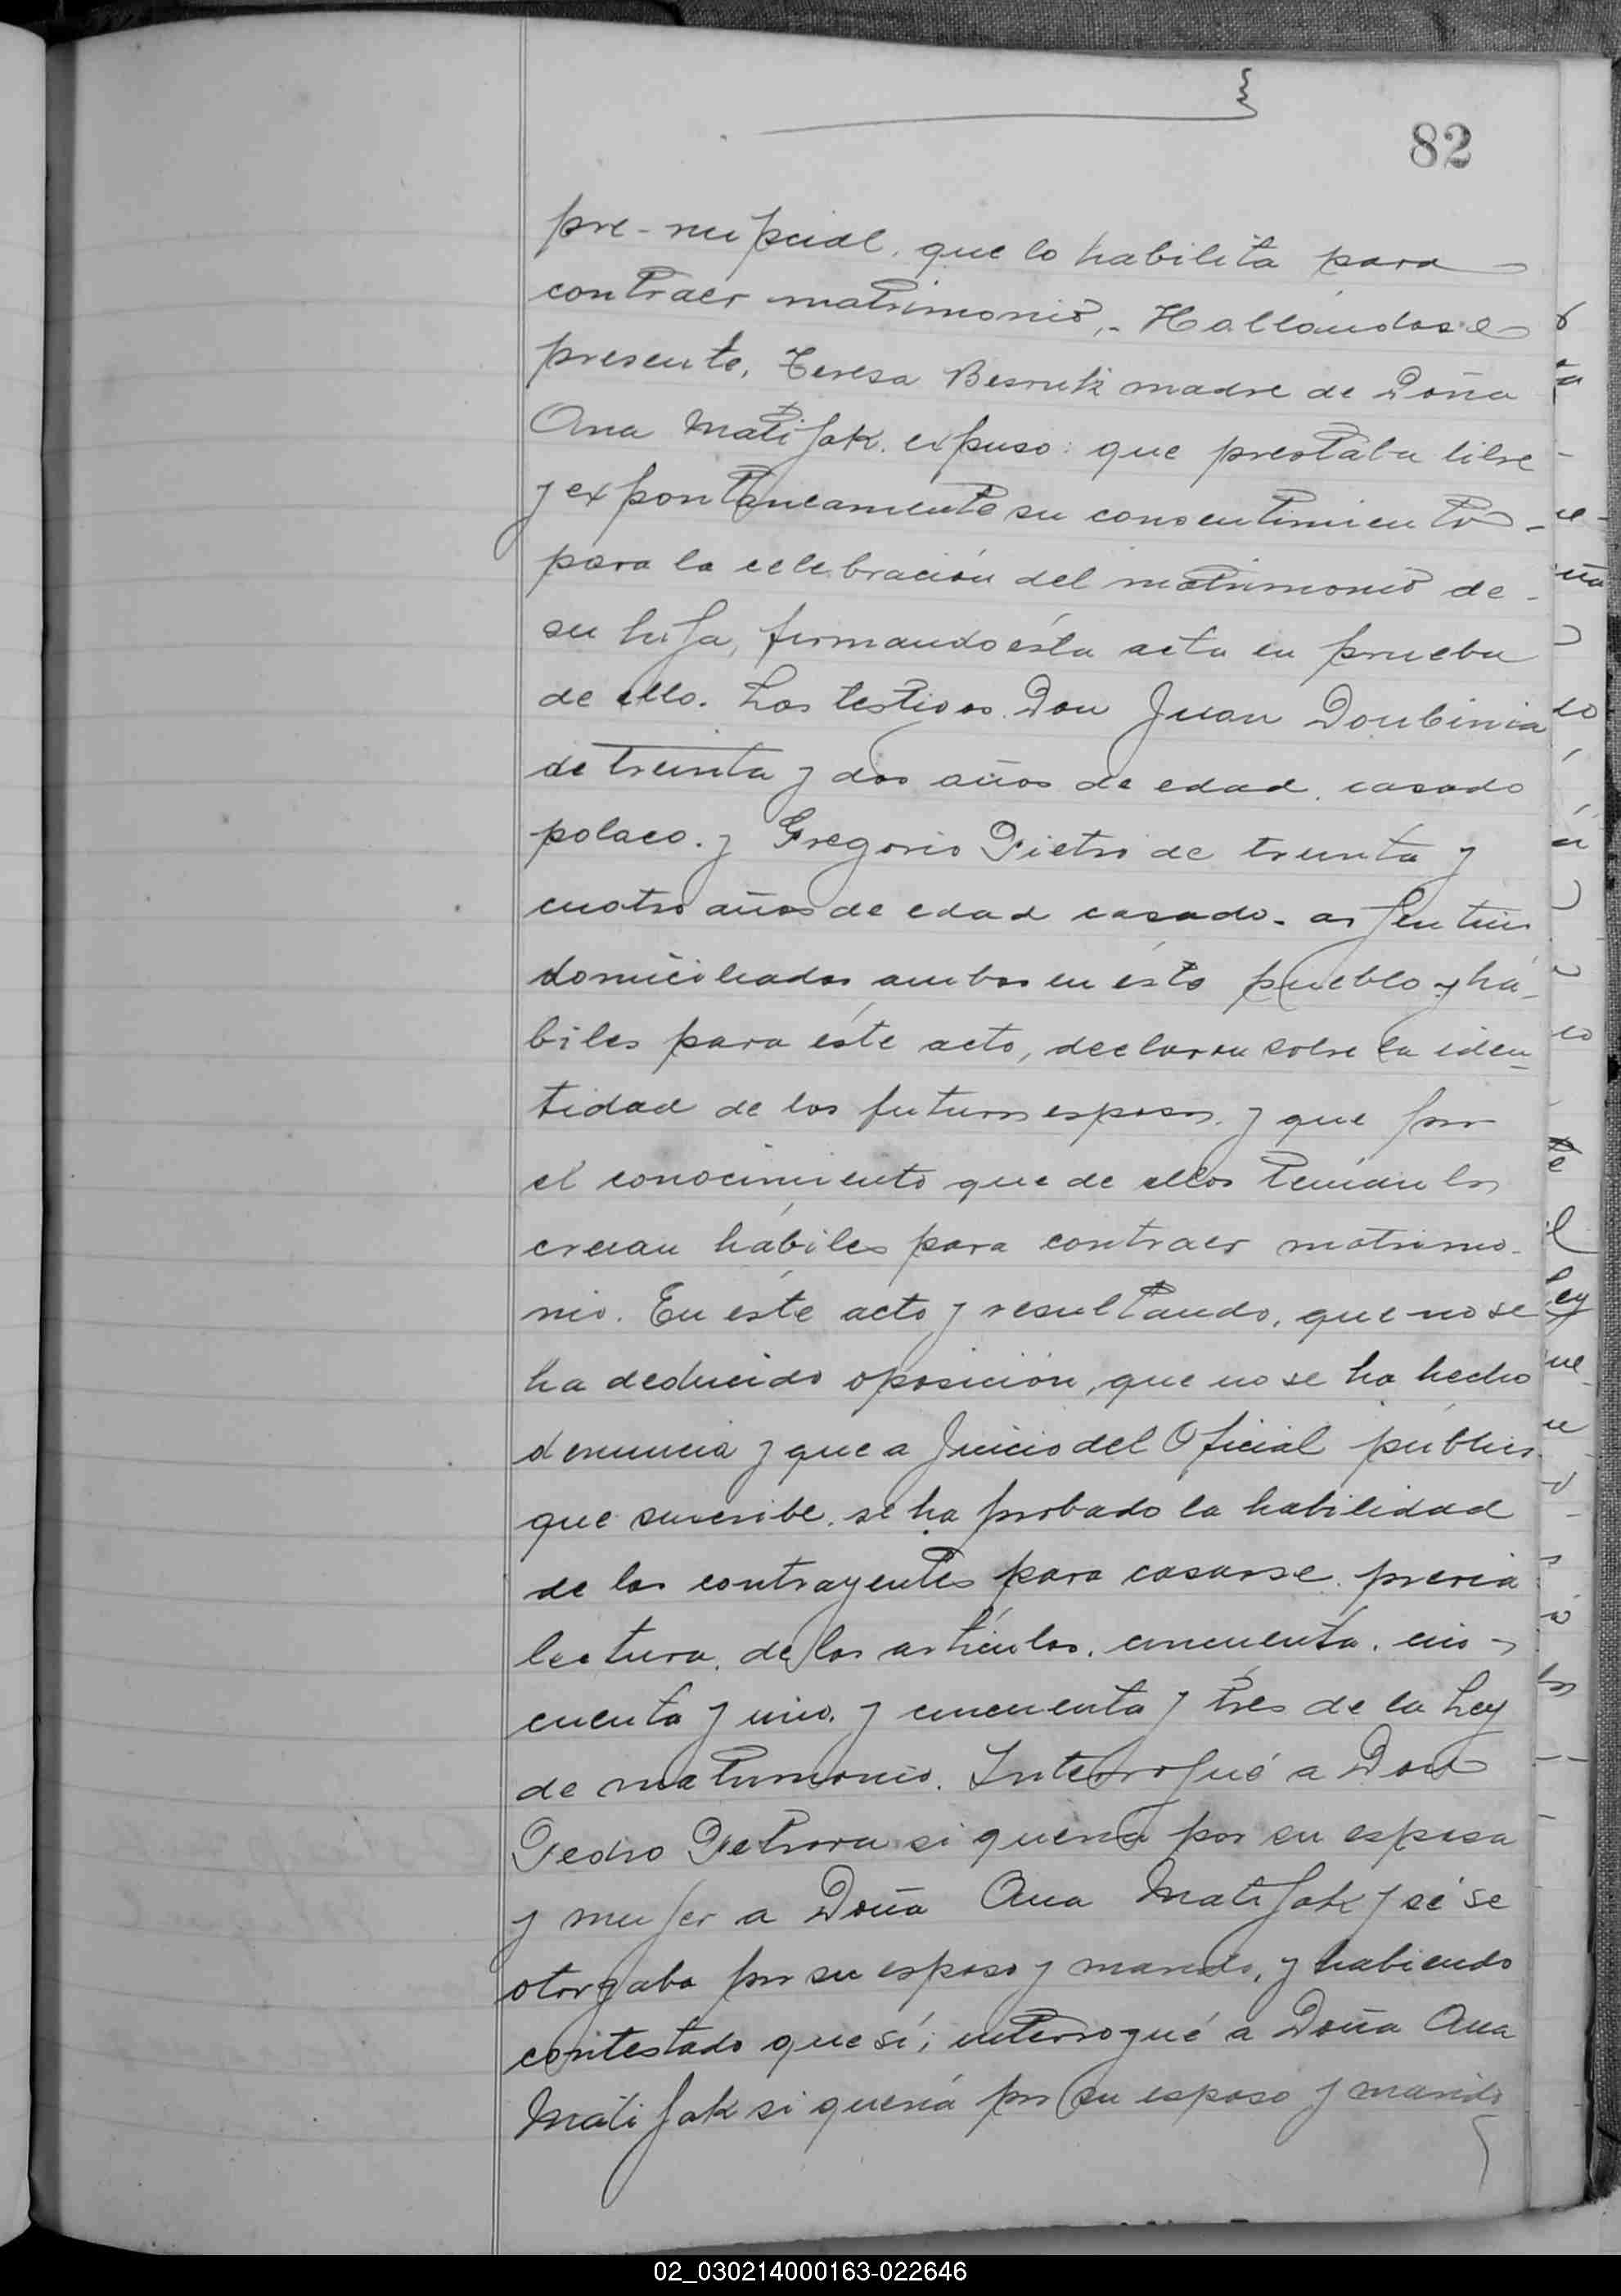 82
pre-nupcial, que lo habilita para
contraer matrimonio,- Hallándose
presente, Teresa Besruk madre de Doña
Ana Matijak. expuso: que prestaba libre
y expontaneamente su consentimiento -
para la celebración del matrimonio de -
su hija, firmando ésta acta en prueba
de ello. Los testigos. Don Juan Doubinia
de treinta y dos años de edad, casado
polaco. y Gregorio Pietro de treinta y
cuatro años de edad casado. argentino
domiciliados ambos en ésta pueblo y há-
biles para éste acto, declaran sobre la iden-
tidad de los futuros esposos, y que por
el conocimiento que de ellos tenían los
creían hábiles para contraer matrimo-
nio. En éste acto y resultando, que no se
ha deducido oposición, que no se ha hecho
denuncia y que a juicio del Oficial público
que suscribe, se ha probado la habilidad
de los contrayentes para casarse. previa
lectura, de los artículos, cincuenta, cin-
cuenta y uno, y cincuenta y tres de la Ley
de matrimonio. Interrogué a Don
Pedro Petrova si quería por su esposa
y mujer a Doña Ana Matijak y si se
otorgaba por su esposo y marido, y habiendo
contestado que sí; interrogué a Doña Ana
Matijak si quería por su esposo y marido
02_030214000163-022646